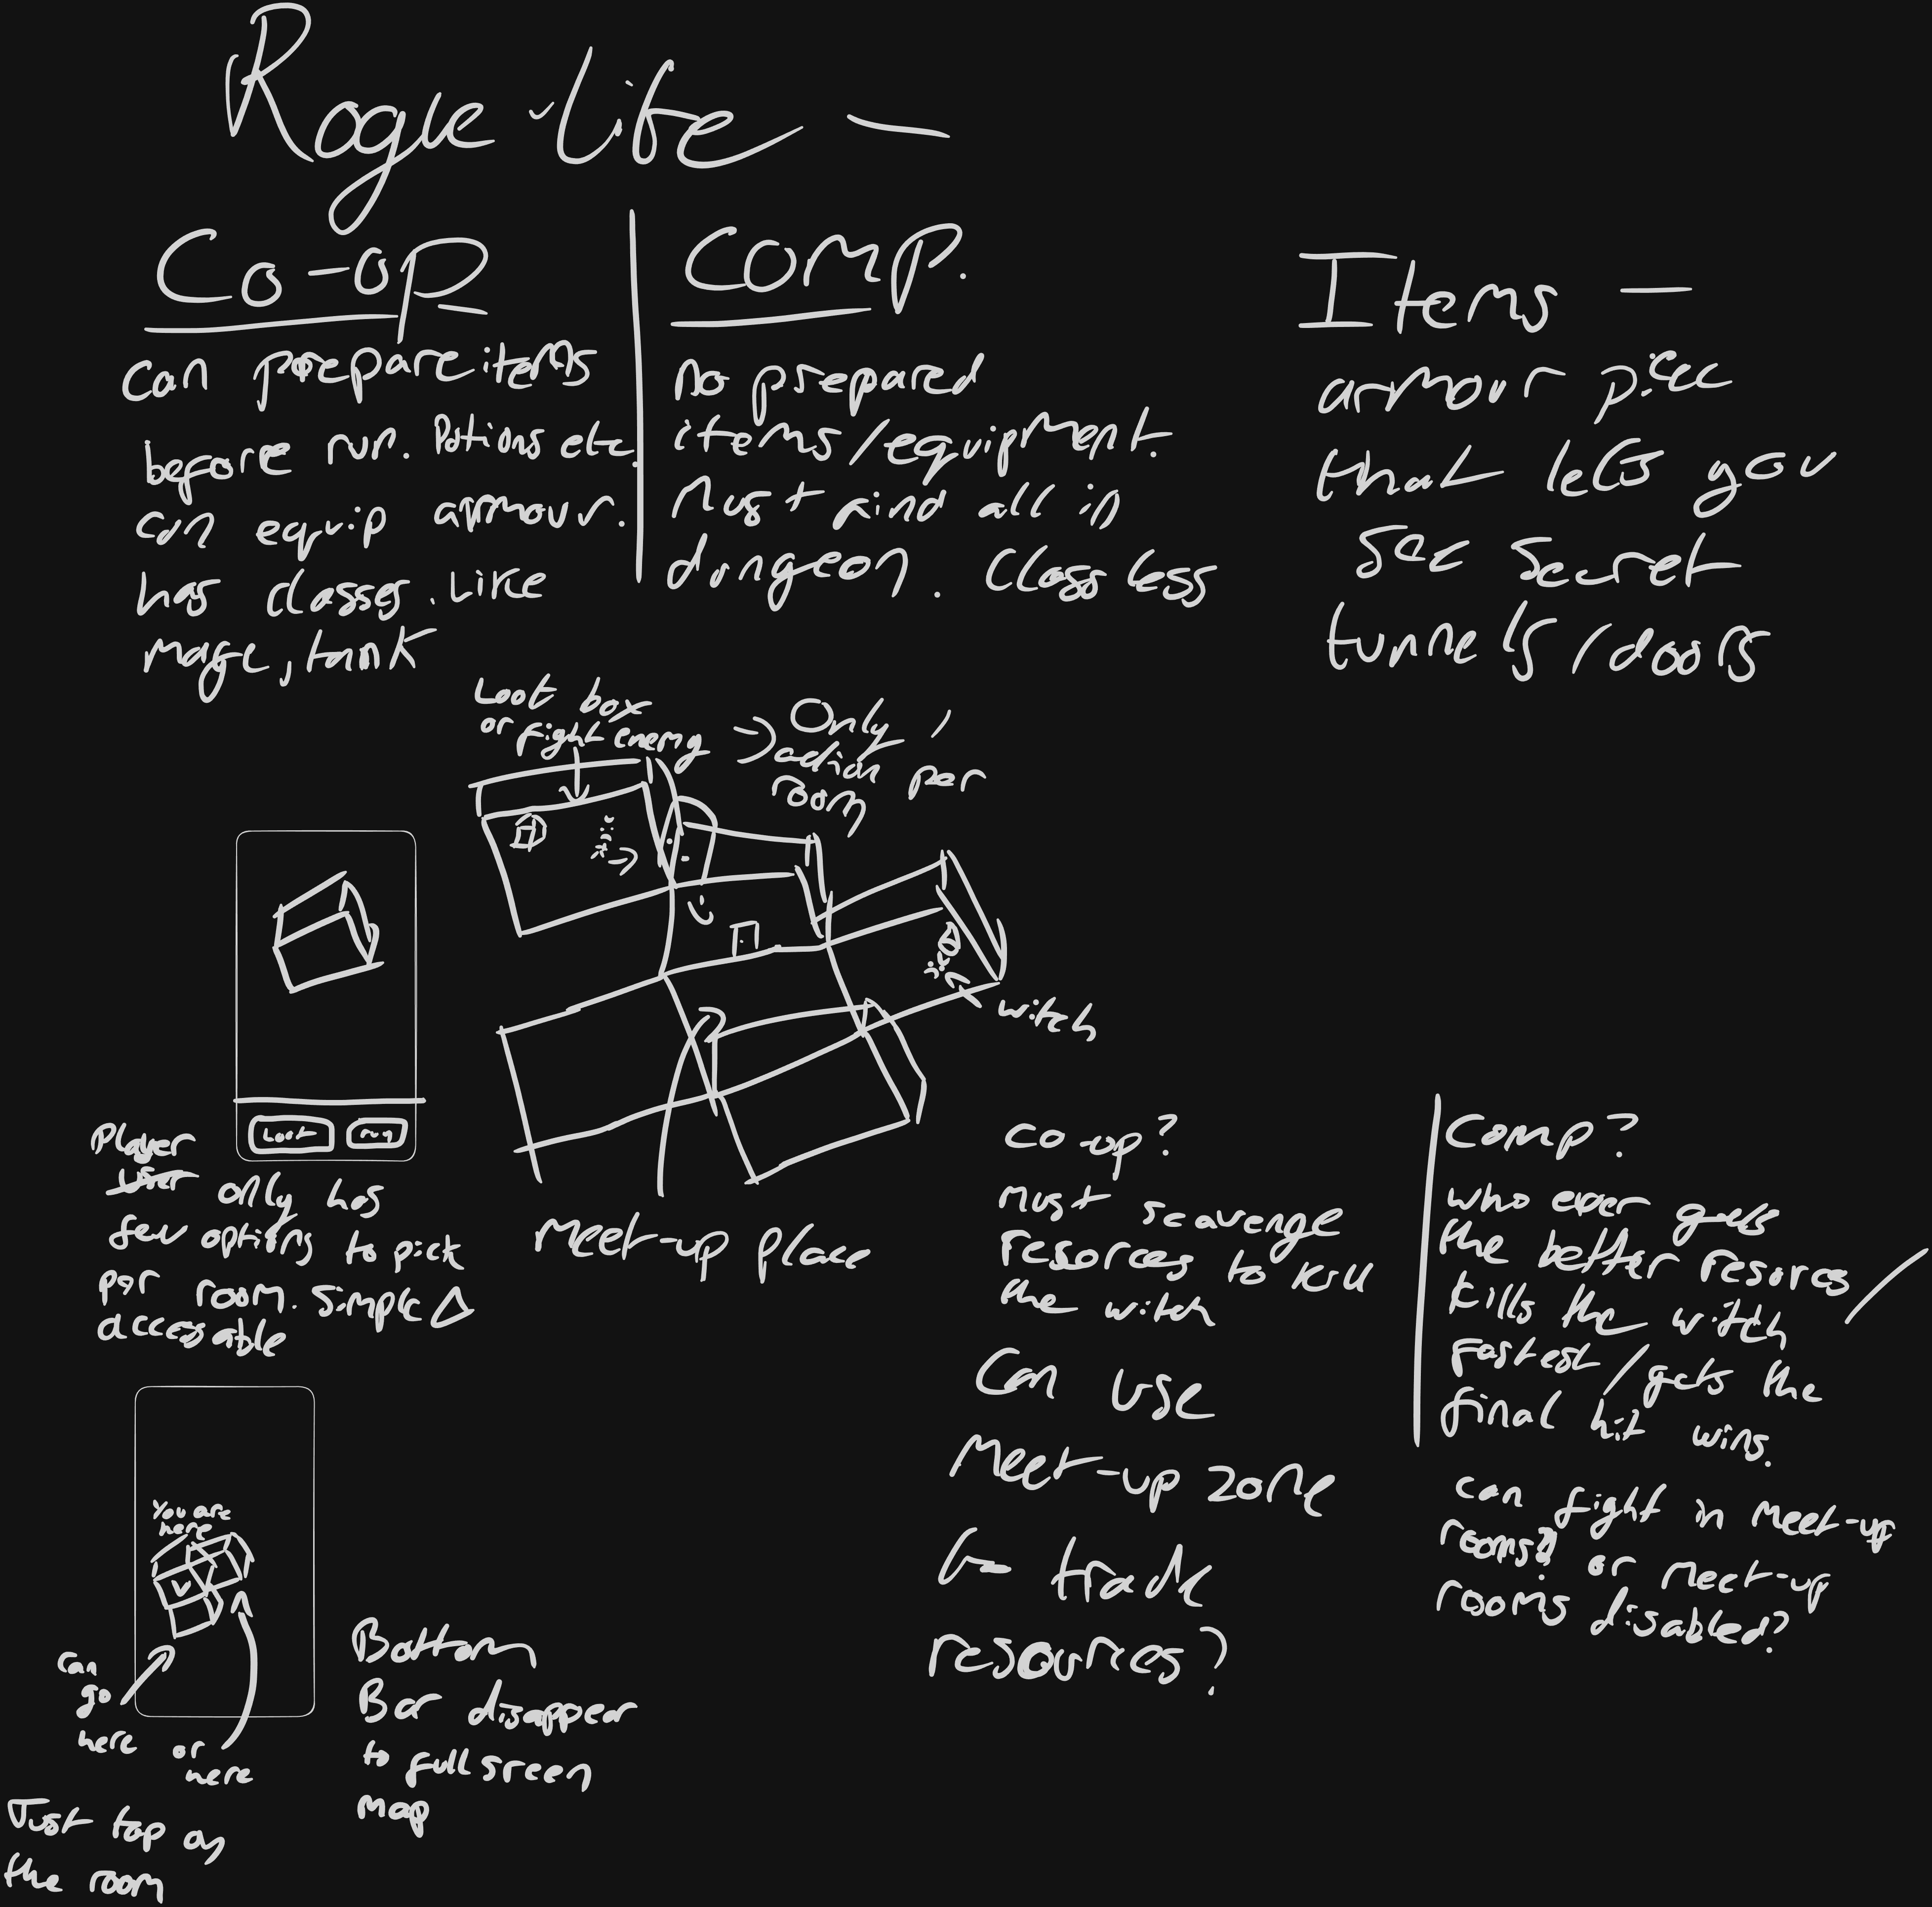 Rogue-like —
Co-op
can prepare items
before run. Potions etc.
can equip armour.
has classes. Like
mage, tank
Comp.
no prepared
items/equipment.
Must find all in
dungeon. Classless
Items —
armour piec
that lets you
see secret
tunnels/doors
Loot box
or fight enemy
Only 1
action per
room
witch
Loot
run
Player
only has
few options to pick
per room. simple
accessable
Meet-up place
co-op?
Must scavenge
resorces to kill
the witch
Can use
Meet-up zone
to trade
resources?
Comp?
who ever gets
the better resorces/
kills the witch
Fastest/gets the
final hit wins.
can fight in Meet-up
rooms? or meet-up
rooms disabled?
You are
here
can
go
here or
here
Just tap on
the room
Bottom
Bar disappear
to full sreen
map